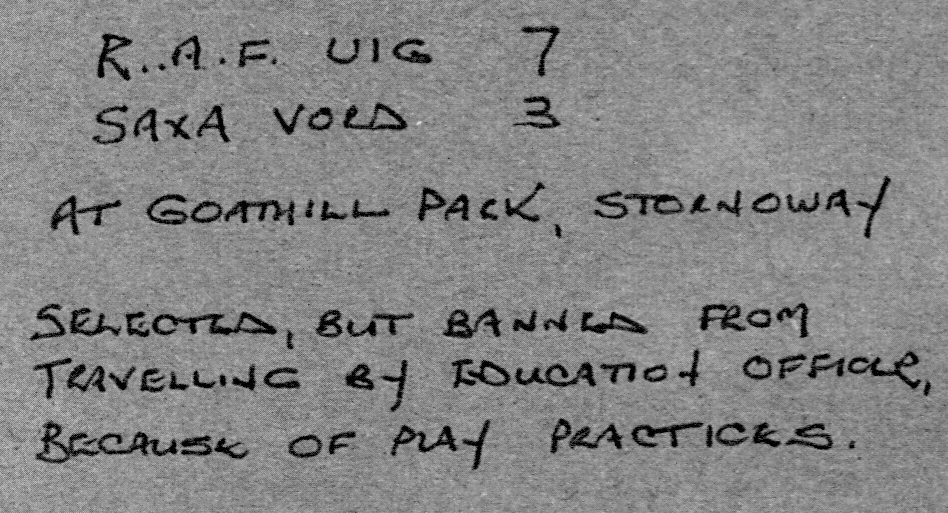 R..A.F. UIG 7
SAXA VORD 3
AT GOATHILL PARK, STORNOWAY
SELECTED, BUT BANNED FROM
TRAVELLING BY EDUCATION OFFICER,
BECAUSE OF PLAY PRACTICES.